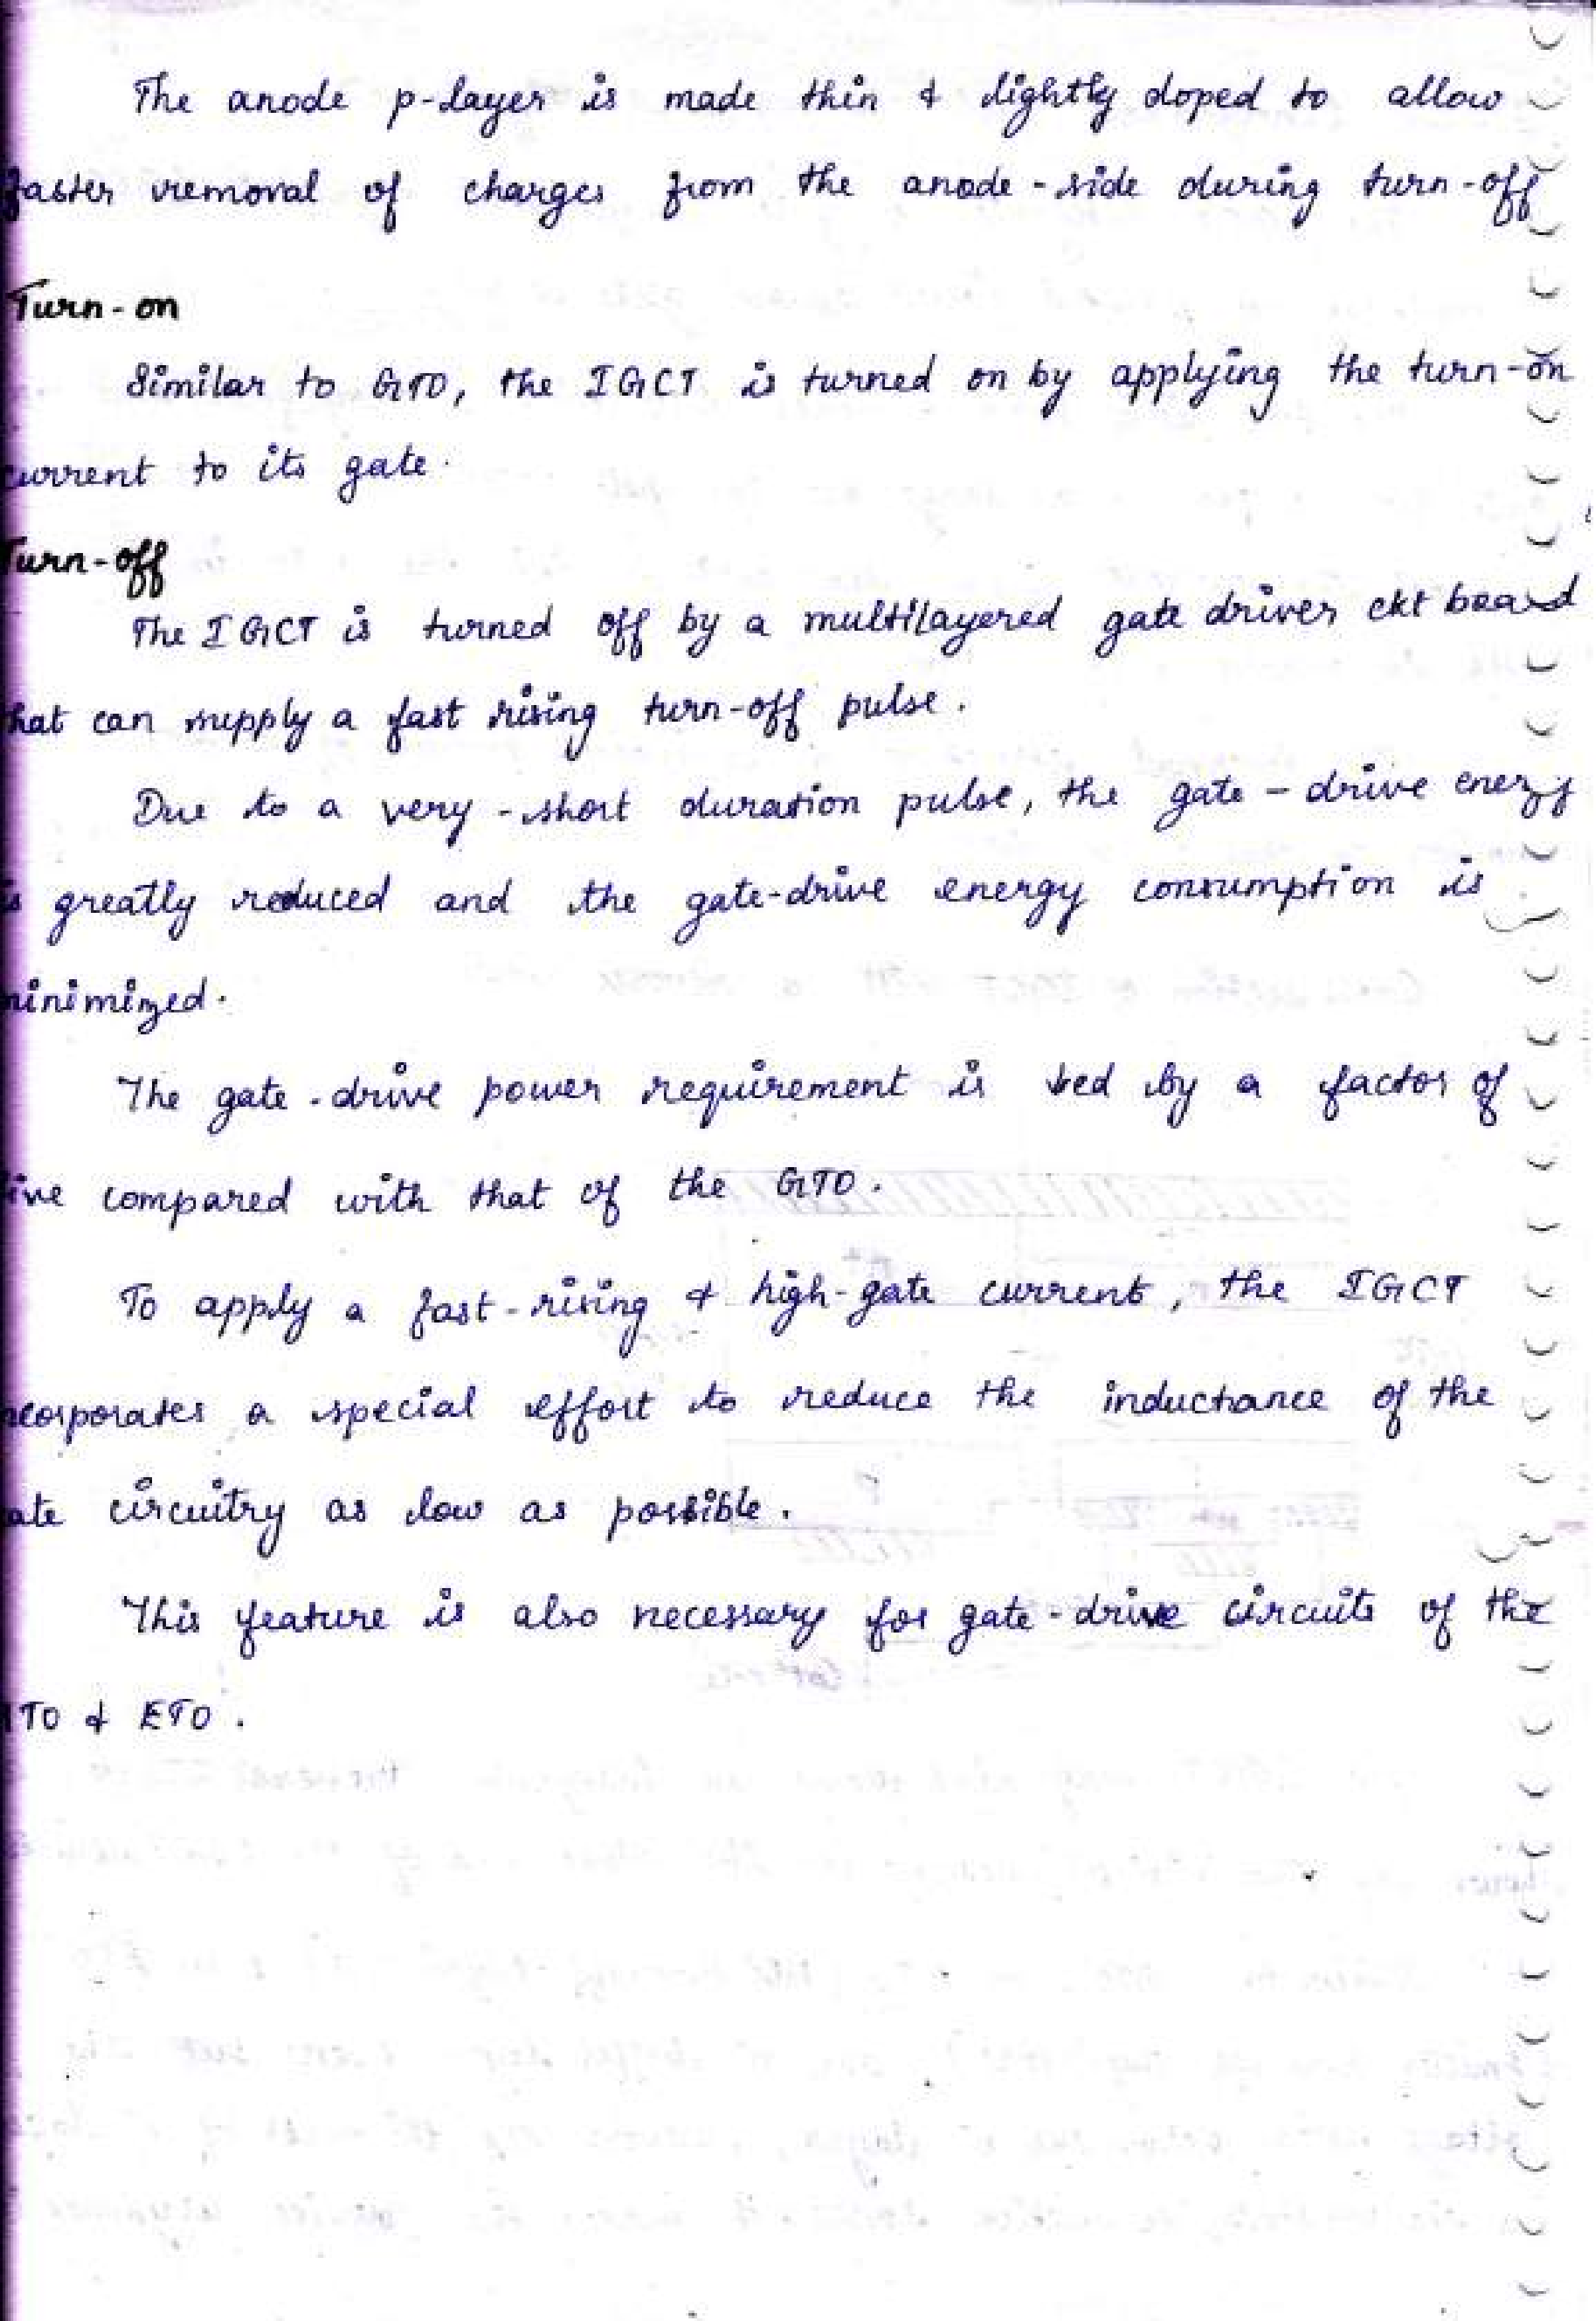 The anode p-layer is made thin & lightly doped to allow
faster removal of charges from the anode-side during turn-off
Turn-on
Similar to GTO, the IGCT is turned on by applying the turn-on
current to its gate.
Turn-off
The IGCT is turned off by a multilayered gate driver ckt board
hat can supply a fast rising turn-off pulse.
Due to a very-short duration pulse, the gate-drive energy
is greatly reduced and the gate-drive energy consumption is
minimized.
The gate-drive power requirement is ↓ed by a factor of
ive compared with that of the GTO.
To apply a fast-rising & high-gate current, the IGCT
ncorporates a special effort to reduce the inductance of the
ate circuitry as low as possible.
This feature is also necessary for gate-drive circuits of the
TO & ETO.